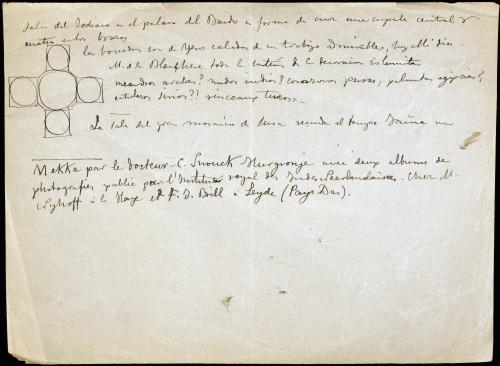 Sala del Zodiaco en el palacio del Bardo en forma de cruz una cupula central y
cuatro en los brazos
las bovedas son de yeso caladas de un trabajo admirable, hay alli dice
M. de la Blanchère toda la de la decoracion islamita
meandros arabes? nudos indios? corazones persas, palmetas egipcias?
sirios?? rinceaux turcos.
La Sala del gran mosaico de Susa recuerda el tiempo
Mekka par le docteur C. Snouck Hurgronje avec deux albums de
photografies publié par l'Institut royal des Indes Neerlandaises. Chez M.
Nyhoff à la Haye et E. J. Brill à Leyde (Pays Bas).